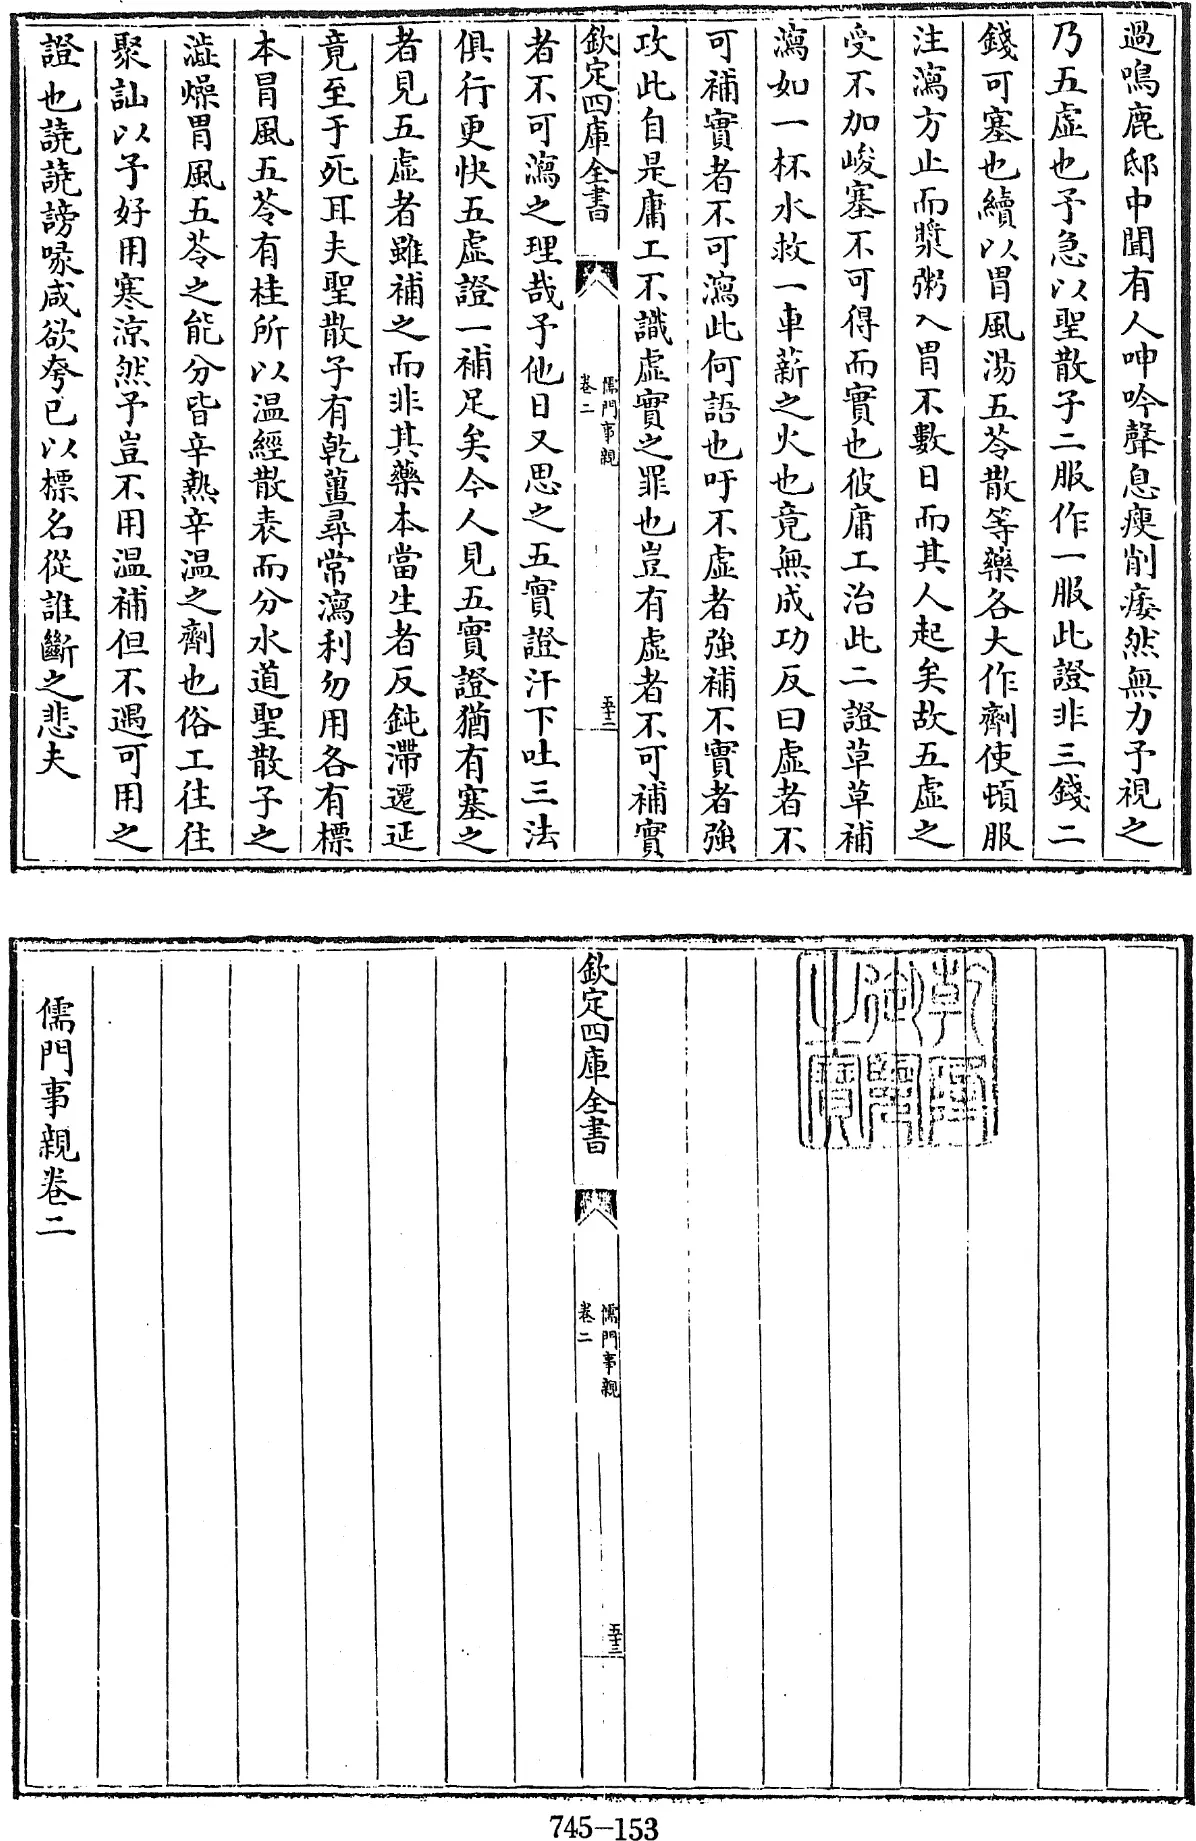 過鳴鹿邸中聞有人呻吟聲息瘦削痿然無力予視之
乃五虛也予急以聖散子二服作一服此證非三錢二
錢可塞也續以胃風湯五苓散等藥各大作劑使頓服
注瀉方止而漿粥入胃不數日而其人起矣故五虛之
受不加峻塞不可得而實也彼庸工治此二證草草補
瀉如一杯水救一車薪之火也竟無成功反曰虛者不
可補實者不可瀉此何語也吁不虛者強補不實者強
攻此自是庸工不識虛實之罪也豈有虛者不可補實
欽定四庫全書
儒門事親
卷二
五十二
者不可瀉之理哉予他日又思之五實證汗下吐三法
俱行更快五虛證一補足矣今人見五實證猶有塞之
者見五虛者雖補之而非其藥本當生者反鈍滯遷延
竟至于死耳夫聖散子有乾薑尋常瀉利勿用各有標
本胃風五苓有桂所以温經散表而分水道聖散子之
澁燥胃風五苓之能分皆辛熱辛温之劑也俗工往往
聚訕以予好用寒涼然予豈不用温補但不遇可用之
證也譊譊謗喙咸欲夸己以標名從誰斷之悲夫
乾隆
御覽
之寶
欽定四庫全書
儒門事親
卷二
五十三
儒門事親卷二
745-153